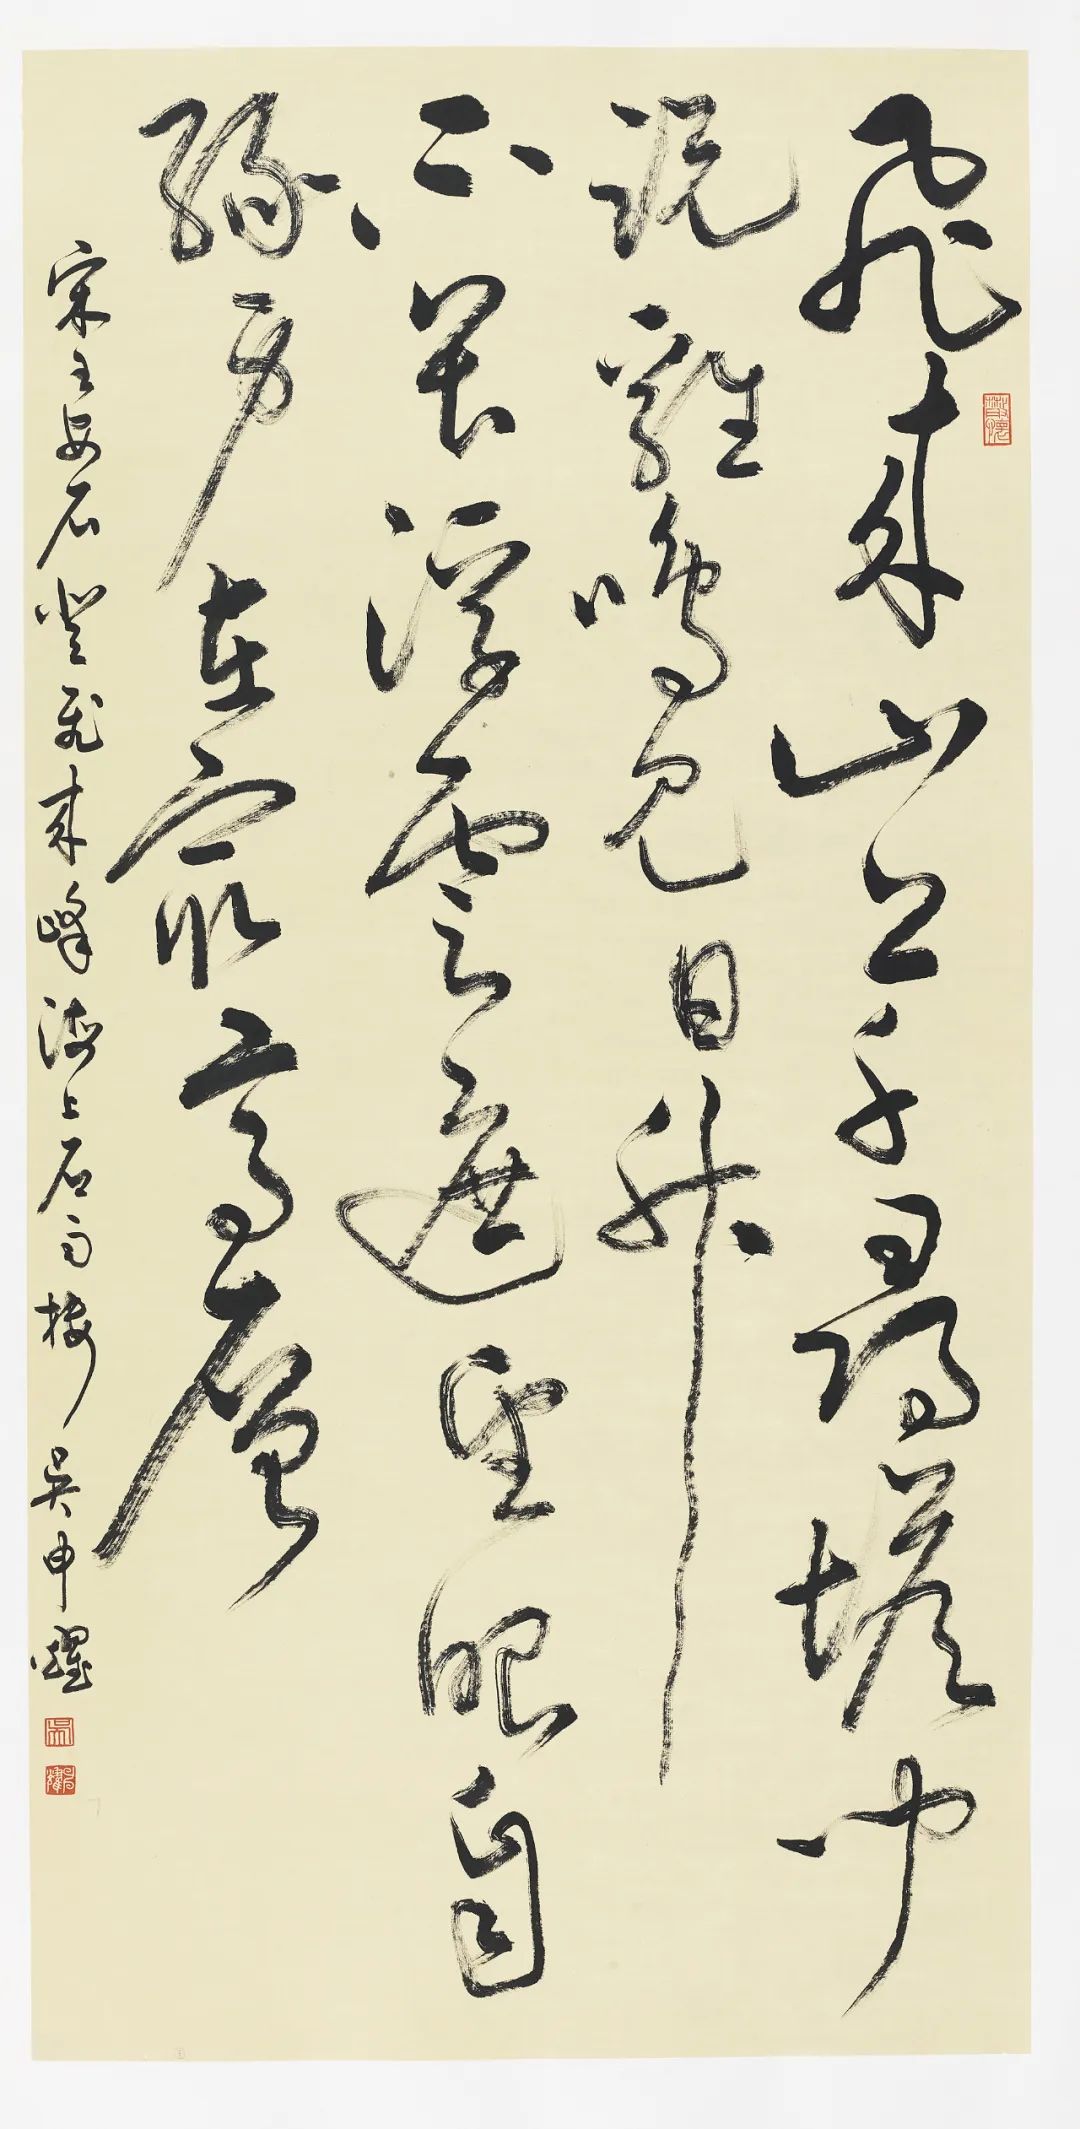 飛來山上千尋塔聞
説雞鳴見日升
不畏浮雲遮望眼自
緣身在最高層
宋王安石登飛來峰海上石樓吴申耀